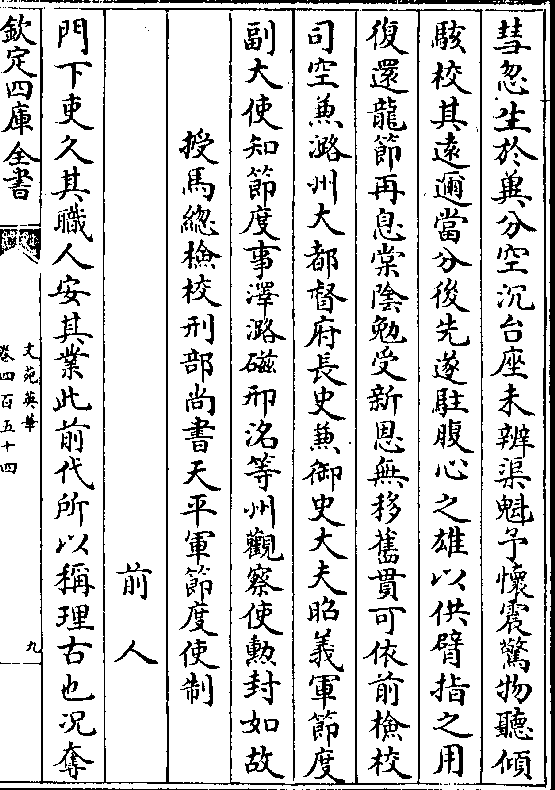 彗忽生於異分空沉台座未辨渠魁予懷震驚物聽傾
駭校其遠邇當分後先遂駐腹心之雄以供臂指之用
復還龍節再息棠陰勉受新恩無移舊貫可依前檢校
司空兼潞州大都督府長史兼御史大夫昭義軍節度
副大使知節度事澤潞磁邢洺等州觀察使勲封如故
授馬總檢校刑部尚書天平軍節度使制
前人
門下吏久其職人安其業此前代所以稱理古也况奪
欽定四庫全書
文苑英華
卷四百五十四
九